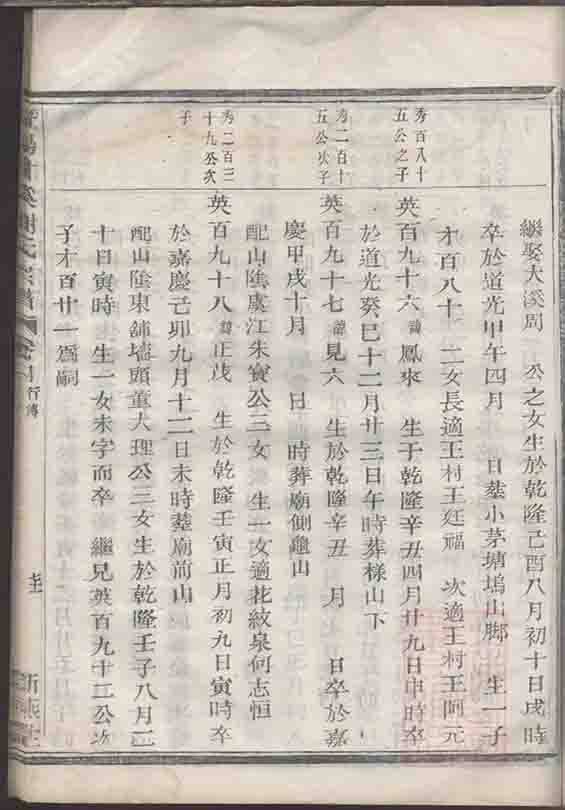 繼娶大溪周 公之女生於乾隆己酉八月初十日戌時
卒於道光甲午四月 日塟小茅塘塢山脚 生一子
才百八十一 二女長適王村王廷福 次適王村王阿元
秀百八十
五公之子
英百九十六 諱鳳來 生于乾隆辛丑四月廿九日申時卒
於道光癸巳十二月廿三日午時葬様山下
秀二百十
五公次子
英百九十七 諱見六 生於乾隆辛丑 月 日卒於嘉
慶甲戌十月 日 時葬廟側龜山
配山隂虞江朱寳公三女 生一女適花紋泉何志恒
秀二百三
十九公次
子
英百九十八 諱正茂 生於乾隆壬寅正月初九日寅時卒
於嘉慶己卯九月十二日未時塟廟前山
配山隂東舖墻頭董大理公三女生於乾隆壬子八月二
十日寅時 生一女未字而卒 繼兄英百九十二公次
子才百廿一爲嗣
謝氏宗譜
行傳